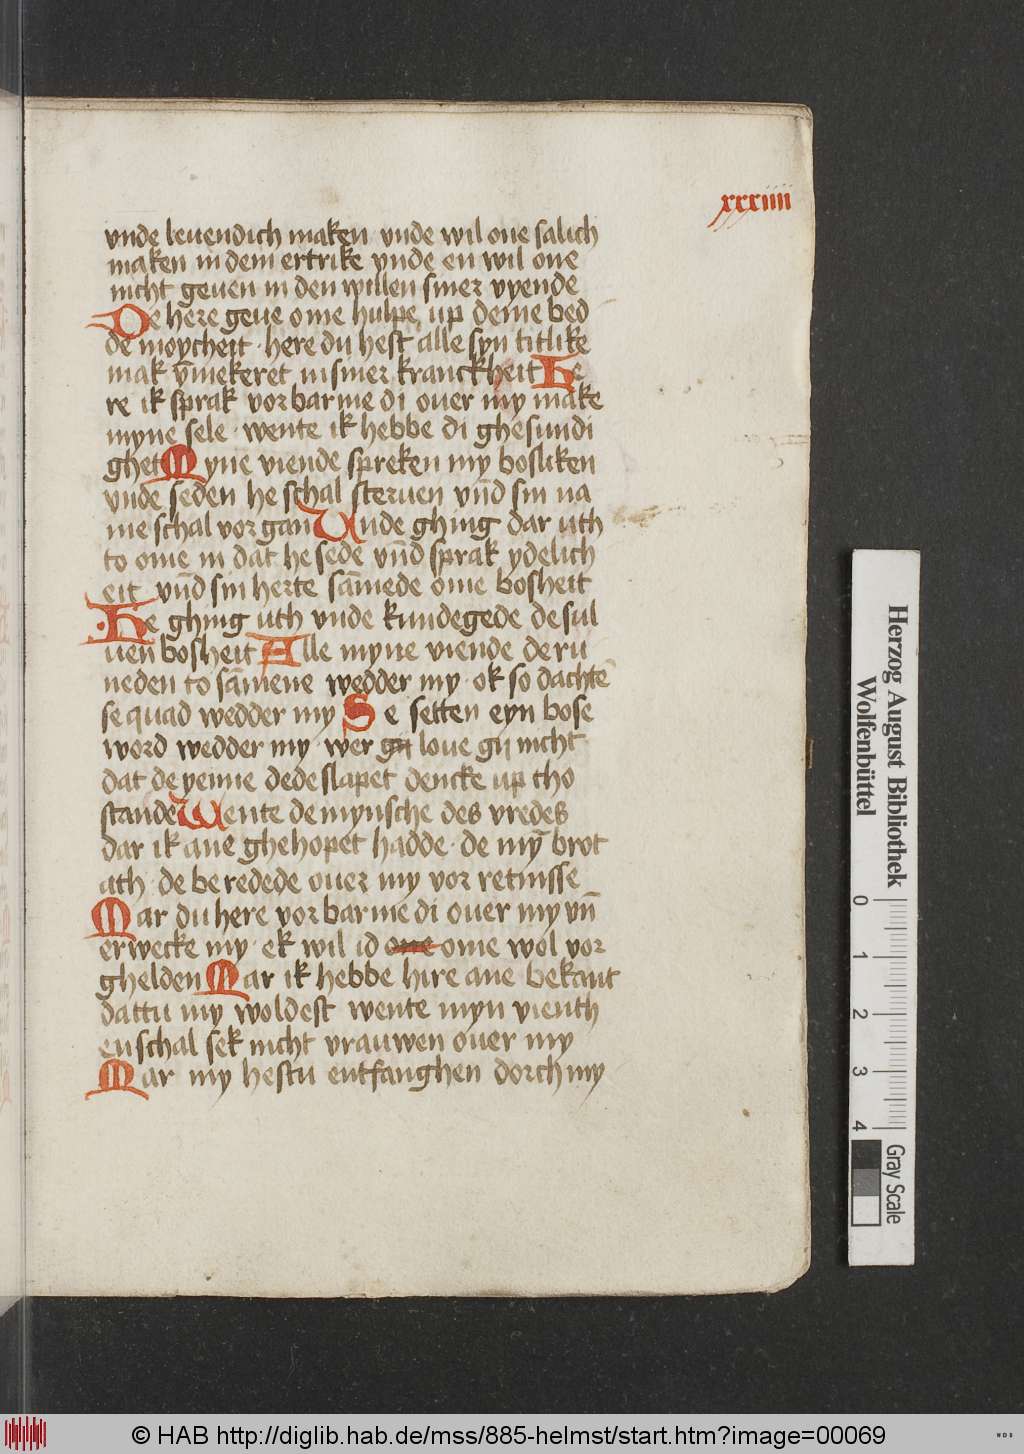 xxxiiii
vnde leuendich maken vnde wil one salich
maken in dem ertrike vnde en wil one
nicht geuen in den willen siner vyende
De here geue ome hulpe up deme bed
de moycheit · here du hest alle syn titlike
mak v̄mekeret in siner kranckheit He
re ik sprak vorbarme di ouer my make
myne sele · wente ik hebbe di ghesundi
ghet Myne viende spreken my bosliken
vnde seden he schal steruen vn̄d sin na
me schal vorgan Unde ghing dar uth
to ome in dat he sede vn̄d sprak ydelich
eit vn̄d sin herte sām̄ede ome bosheit
He ghing uth vnde kundegede de sul
uen bosheit Alle myne viende de ru
neden to sām̄ene wedder my · ok so dachtē
se quad wedder my Se setten eyn bose
word wedder my · wer gy loue gy nicht
dat de yenne dede slapet dencke up tho
stande Wente de mynsche des vredes
dar ik ane ghehopet hadde · de mȳ brot
ath · de beredede ouer my vorretnisse
Mar du here vorbarme di ouer my vn̄
erwecke my · ek wil id one ome wol vor
ghelden Mar ik hebbe hire ane bekant
dattu my woldest wente myn vienth
en schal sek nicht vrauwen ouer my
Mar my hestu entfanghen dorch my
Herzog August Bibliothek
Wolfenbüttel
0 1 2 3 4
Gray Scale
© HAB http://diglib.hab.de/mss/885-helmst/start.htm?image=00069
WDB